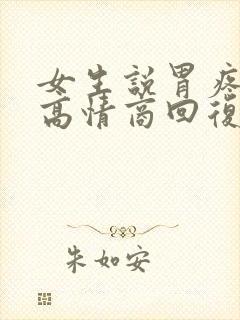 女生說胃疼
高情商回復
朱如安